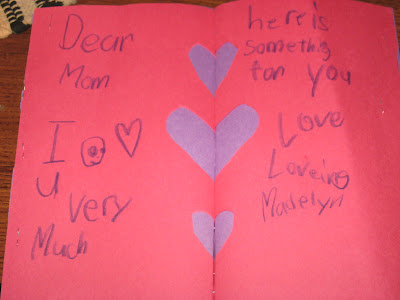 Dear
Mom
I ♡
U
very
Much
here is
somethig
for you
Love
Loveing
Madelyn